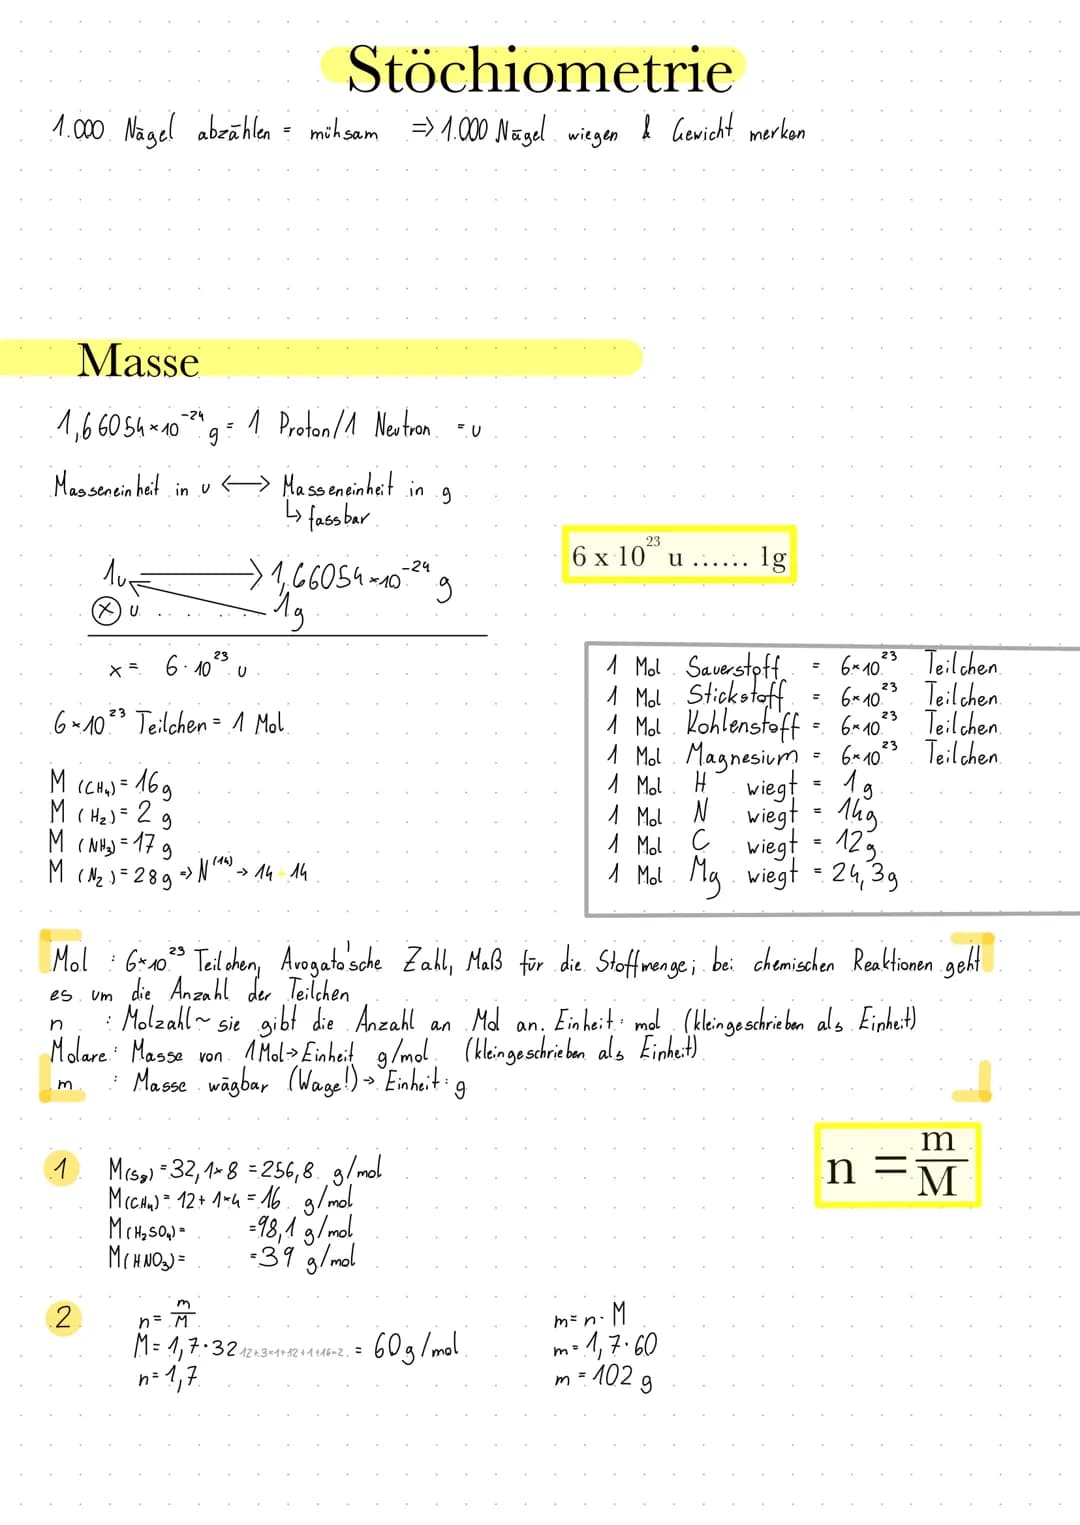 Stöchiometrie
1.000 Nägel abzählen = mühsam => 1.000 Nägel wiegen & Gewicht merken
Masse
1,66054×10⁻²⁴ g = 1 Proton/1 Neutron = u
Masseneinheit in u <-> Masseneinheit in g
↳ fassbar
6 x 10²³ u ...... 1g
1u -> 1,66054×10⁻²⁴ g
(x) u ...... 1g
x = 6·10²³ u
6×10²³ Teilchen = 1 Mol
M (CH₄) = 16g
M (H₂) = 2 g
M (NH₃) = 17 g
M (N₂) = 28g => N⁽¹⁴⁾ -> 14 + 14
1 Mol Sauerstoff = 6×10²³ Teilchen
1 Mol Stickstoff = 6×10²³ Teilchen
1 Mol Kohlenstoff = 6×10²³ Teilchen
1 Mol Magnesium = 6×10²³ Teilchen
1 Mol H wiegt = 1g
1 Mol N wiegt = 14g
1 Mol C wiegt = 12g
1 Mol Mg wiegt = 24,3g
Mol : 6×10²³ Teilchen, Avogato'sche Zahl, Maß für die Stoffmenge; bei chemischen Reaktionen geht
es um die Anzahl der Teilchen
n : Molzahl ~ sie gibt die Anzahl an Mol an. Einheit: mol (kleingeschrieben als Einheit)
Molare: Masse von 1 Mol -> Einheit g/mol (kleingeschrieben als Einheit)
m : Masse wägbar (Wage!) -> Einheit: g
n = m/M
1 M(S₈) = 32,1×8 = 256,8 g/mol
M(CH₄) = 12+ 1×4 = 16 g/mol
M(H₂SO₄) = =98,1 g/mol
M(HNO₃) = =39 g/mol
2 n = m/M
M = 1,7·32 12+3×1+12+1+16·2 = 60g/mol
n = 1,7
m = n·M
m = 1,7·60
m = 102 g